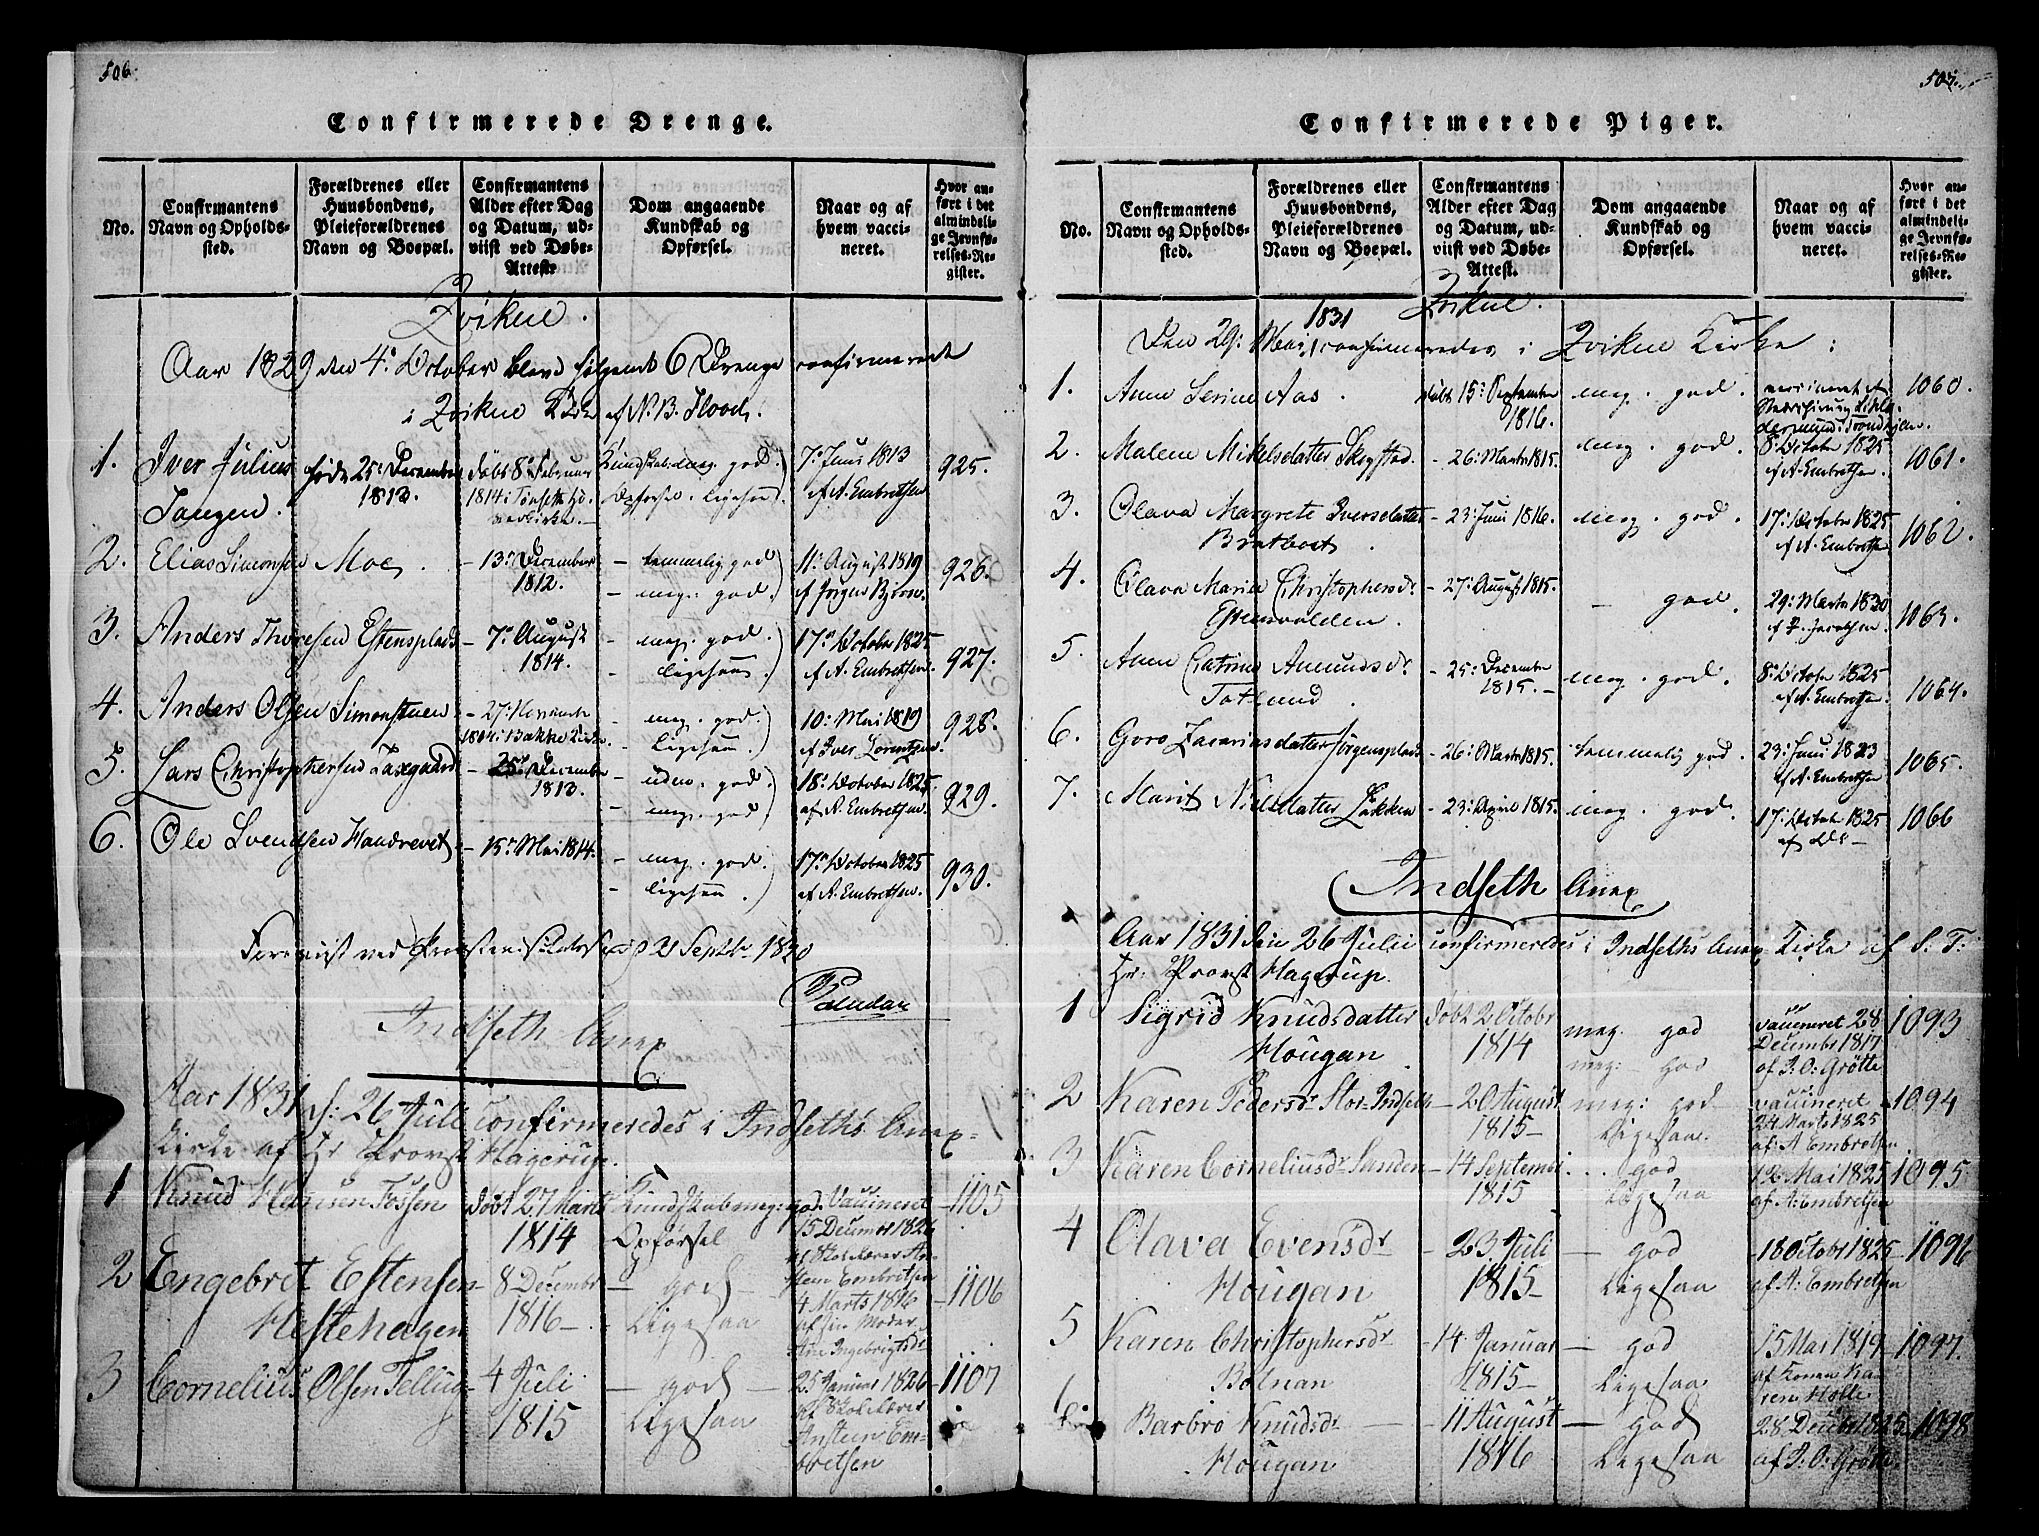 506.
Confirmerede Drenge.
No.
Confirmantens Navn og Opholds-sted.
Forældrenes eller Huusbondens, Pleieforældrenes Navn og Boepæl.
Confirmantens Alder efter Dag og Datum, ud-viist ved Døbe-Attest.
Dom angaaende Kundskab og Opførsel.
Naar og af hvem vacci-neret.
Hvor an-ført i det almindeli-ge Jevnfø-relses-Re-gister.
Qvikne.
Aar 1829 den 4de October blev følgende 6 Drenge confirmerede
i Qvikne Kirke af N. B. Flood.
1. Iver Julius Tangen. født 25: December 1813. døbt 8de Februar 1814 i Tønseth Kundskab meg. god. Opførsel. ligesaa. 7de Juni 1813 af A. Embretsen 925.
2. Elias Simonsen Moe. - 13: December 1812. - temmelig god - meg: god. 11: August 1819 af Jørgen Bjørn. 926.
3. Anders Thoresen Estensplads - 7de August 1814. - meg. god. - ligesaa. 17de October 1825 af A. Embretsen. 927.
4. Anders Olsen Simonstuen - 27: November 1814 i Bakke Kirke. - meg. god. - ligesaa. 10: Mai 1819 af Iver Lorentzen. 928.
5. Lars Christophersen Faxgaard - 25: December 1813. - uden. god. - meg. god. 18: October 1825 af A. Embretsen. 929.
6. Ole Svendsen Haandrevet - 15: Mai 1814. - meg. god - ligesaa 17de October 1825 af A. Embretsen. 930.
21 Septbr 1830
Indseth Anex
Aar 1831 d: 26 Juli confirmeredes i Indseths Anex-
Kirke af Hr Provst Hagerup.
1 Knud Hansen Fossen døbt 27 Marts 1814 Kundskab meg: god. Opførsel Vaccineret 15 December 1826 af Skolelærer An-steen Embretsen 1105
2 Engebret Estensen Hestehagen - 8 Decembr 1816 - - god - Ligesaa 4 Marts 1816 af sin Moder Ane Ingebrigtsdr 1106
3 Cornelius Olsen Fellug- 4 Juli 1815 - god - Ligesaa 25 Januar 1826 af Skolelærer Ansteen Em-bretsen 1107
507.
Confirmerede Piger.
No.
Confirmantens Navn og Opholds-sted.
Forældrenes eller Huusbondens, Pleieforældrenes Navn og Boepæl.
Confirmantens Alder efter Dag og Datum, ud-viist ved Døbe-Attest.
Dom angaaende Kundskab og Opførsel.
Naar og af hvem vacci-neret.
Hvor an-ført i det almindeli-ge Jevnfø-relses-Re-gister.
Qvikne.
1831
Den 29: Mai confirmeredes i Qvikne Kirke:
1. Anne Serine Aas. døbt 15: September 1816. meg. god. vaccineret af i Trondhjem. 1060.
2. Malene Mikelsdatter Skogstad. - 26: Marts 1815. meg. god. 8: October 1825 af A. Embretsen. 1061.
3. Olava Margrete Iversdatter Bratbost. - 23: Juni 1816. meg. god. 17: October 1825 af A. Embretsen 1062.
4. Olava Maria Christophersdr Estensvolden. - 27: August 1815. - god. 29: Marts 1820 1063.
5. Anne Catrina Amundsdr Fatlund. - 25: December 1815. - meg. god. 8de October 1825 af A. Embretsen. 1064.
6. Goro Zacariasdatter Jørgensplads - 26: Marts 1815. temmelig god. 23: Juni 1823 af A. Embretsen 1065.
7. Marit Nielsdatter Løkken - 23: April 1815. meg. god. 17: October 1825 af do - 1066
Indseth Anex
Aar 1831 den 26 Julii confirmeredes i Indseths Anex Kirke af S: T:
Hr: Provst Hagerup.
1 Sigrid Knudsdatter Hougan døbt 2 Octobr 1814 meg. god meg: - god vaccineret 28 Decembr 1817 af P. O. Grøtte 1093
2 Karen Pedersdr Stor-Indseth - 20 August 1815 - meg: god - Ligesaa. vaccineret 24 Marts 1825 af A Embretsen 1094
3 Karen Corneliusdr Sanden - 14 Septembr. 1815 god Ligesaa 12 Mai 1825 af A: Embretsen 1095
4 Olava Evensdr Hougan - 23 Juli 1815 - - god Ligesaa 18 Octobr 1825 af A: Embretsen 1096
5 Karen Christophersdr Bolnan - 14 Januar 1815 - - god Ligesaa 15 Mai 1819 af Konen Ka-ren Holle 1097.
6 Barbro Knudsdr Hougan - 11 August 1816 - god Ligesaa 28 Decbr 1825 af P: O: Grøtte. 1098